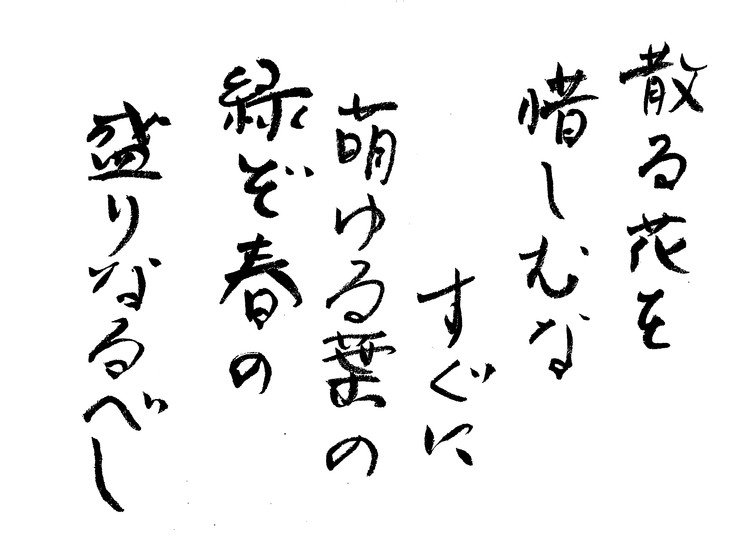 散る花を
惜しむな
すぐに
萌ゆる葉の
緑ぞ春の
盛りなるべし